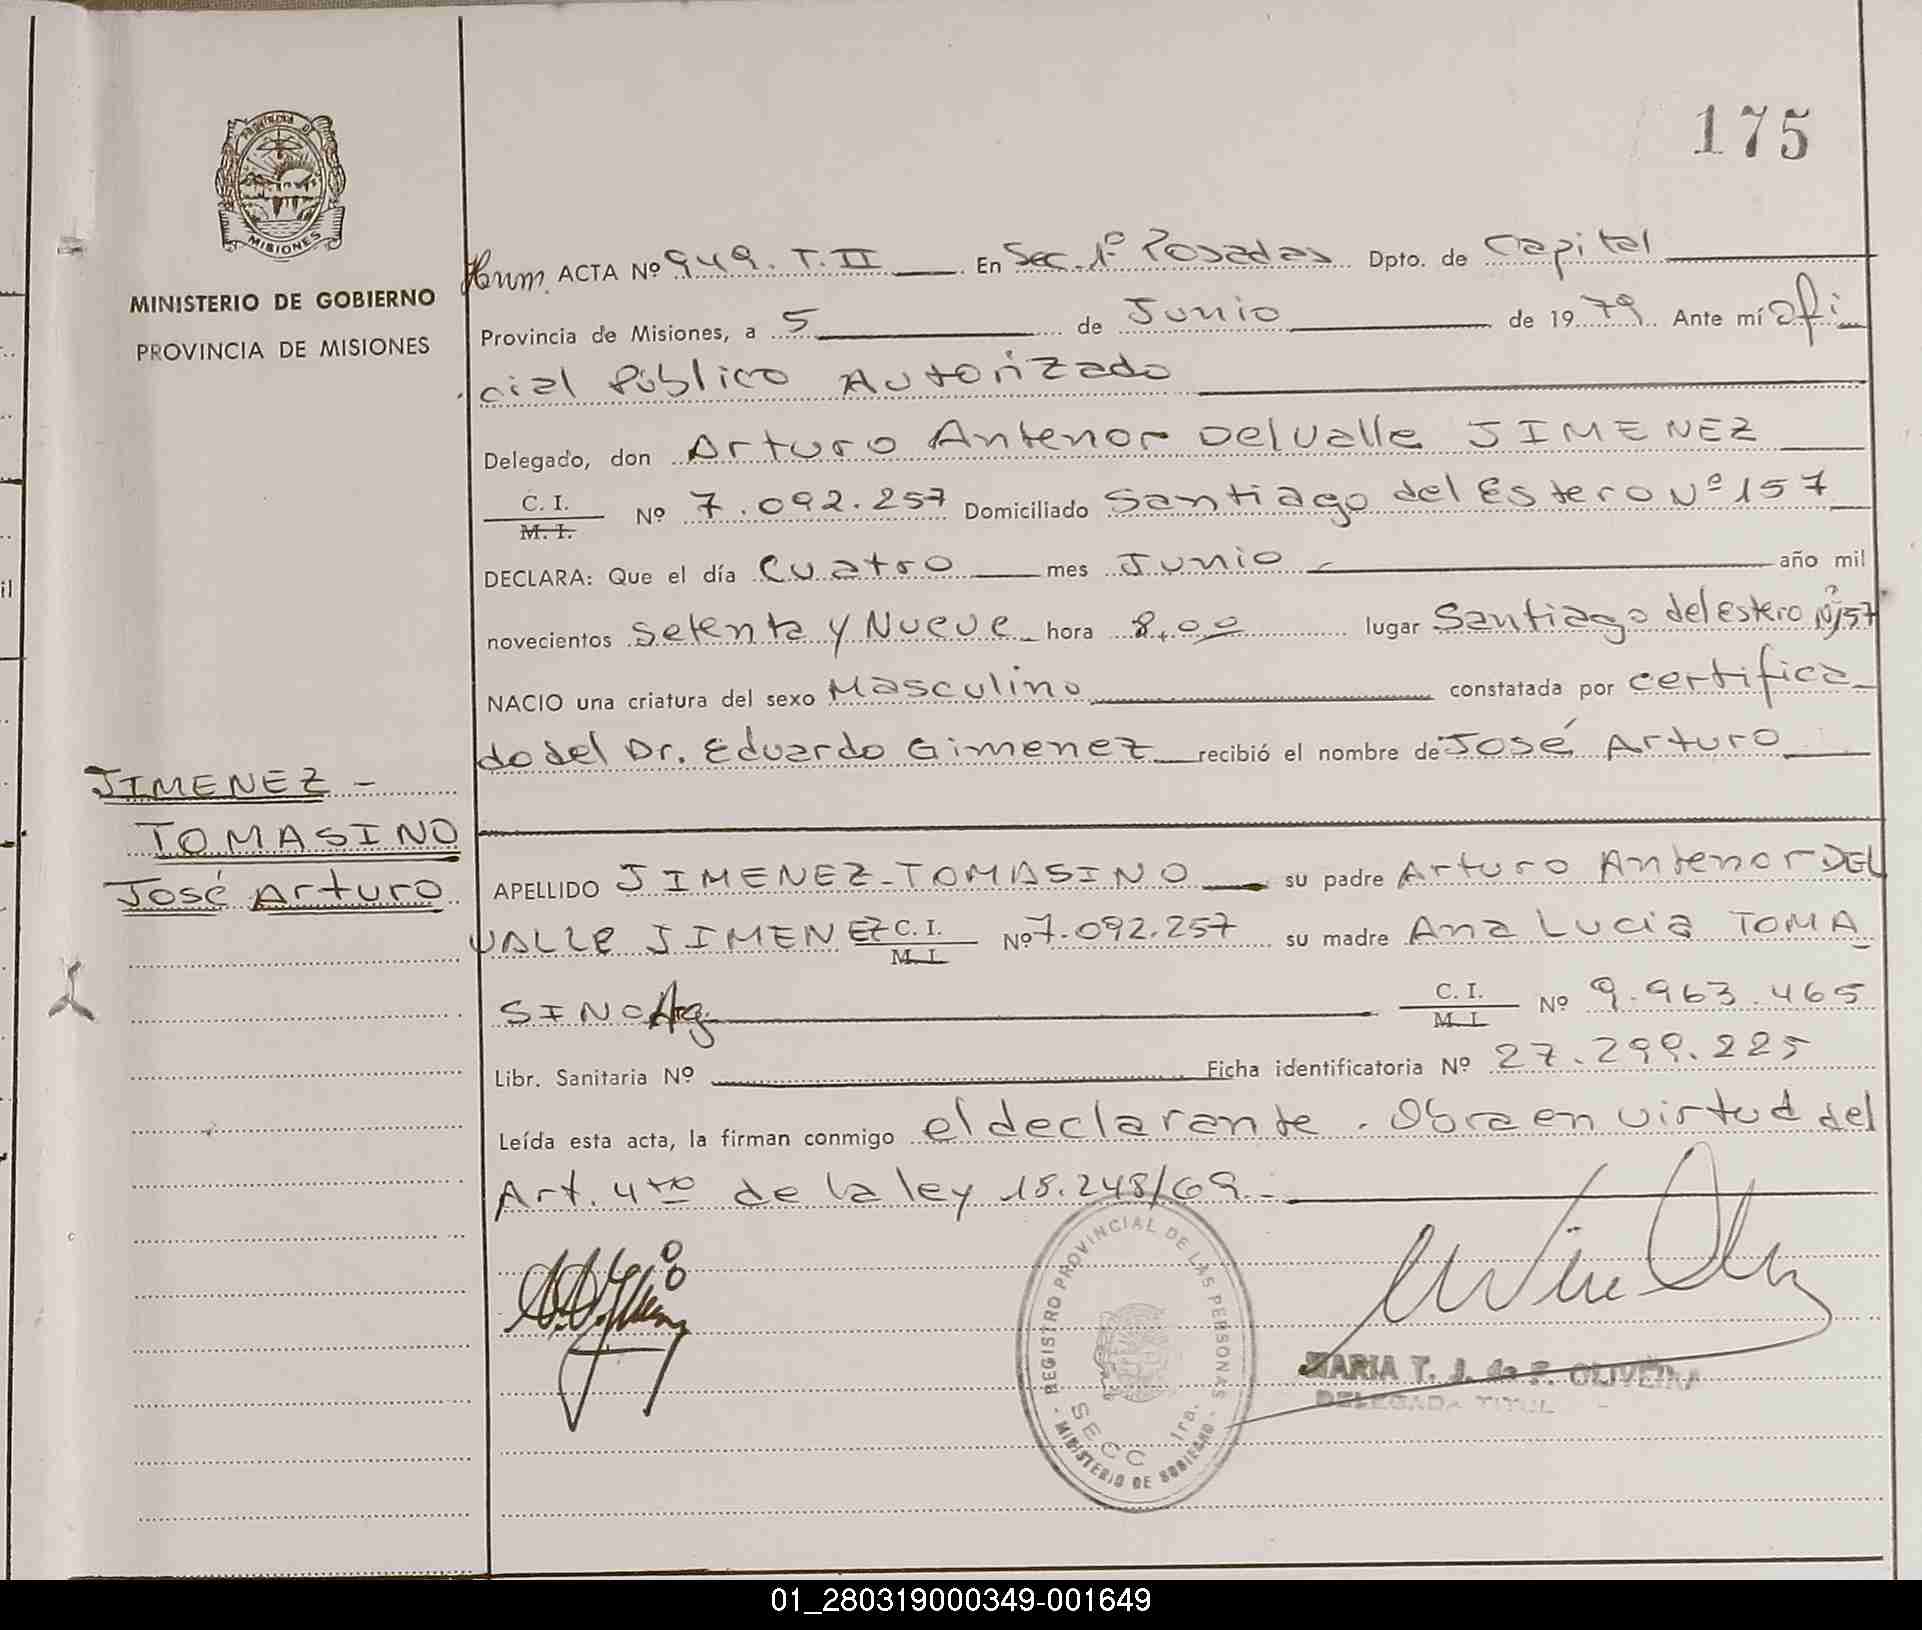 175
PROVINCIA DE
MISIONES
MINISTERIO DE GOBIERNO
PROVINCIA DE MISIONES
JIMENEZ -
TOMASINO
José Arturo
Hnm. ACTA Nº 949. T. II En Sec. 1º Posadas Dpto. de Capital
Provincia de Misiones, a 5 de Junio de 1979. Ante mí ofi
cial Público Autorizado
Delegado, don Arturo Antenor Del Valle JIMENEZ
C. I.
M. I.
Nº 7.092.257 Domiciliado Santiago del Estero Nº 157
DECLARA: Que el día Cuatro mes Junio año mil
novecientos setenta y Nueve hora 8,00 lugar Santiago del Estero Nº 157
NACIO una criatura del sexo Masculino constatada por certifica
do del Dr. Eduardo Gimenez recibió el nombre de José Arturo
APELLIDO JIMENEZ-TOMASINO su padre Arturo Antenor DEL
VALLE JIMENEZ C. I. Nº 7.092.257 su madre Ana Lucia TOMA
M. I.
SINO Arg. C. I. Nº 9.963.465
M. I.
Libr. Sanitaria Nº Ficha identificatoria Nº 27.299.225
Leída esta acta, la firman conmigo el declarante. Obra en virtud del
Art. 4to de la ley 18.248/69.-
REGISTRO PROVINCIAL DE LAS PERSONAS
- MINISTERIO DE GOBIERNO -
SECC 1ra.
MARIA T. J. de F. OLIVEIRA
DELEGADA TITUL
01_280319000349-001649